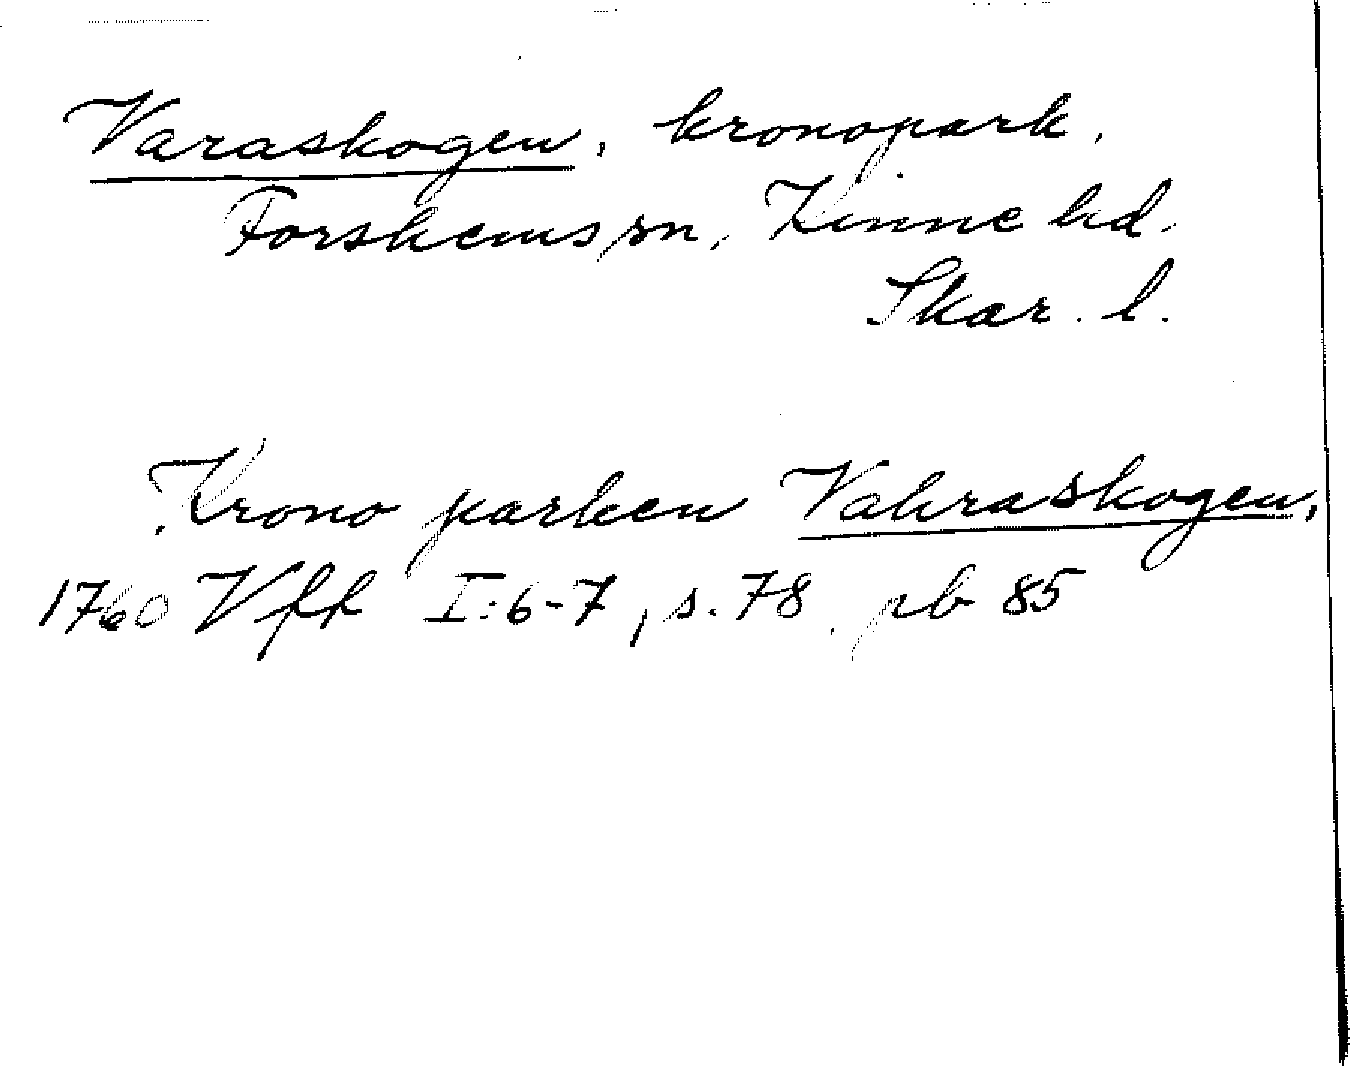 Varaskogen, kronopark,
Forshems sn, Kinne hd.
Skar. l.
Krono parken Vahraskogen,
1760 Vfft I:6-7, s. 78, pb 85